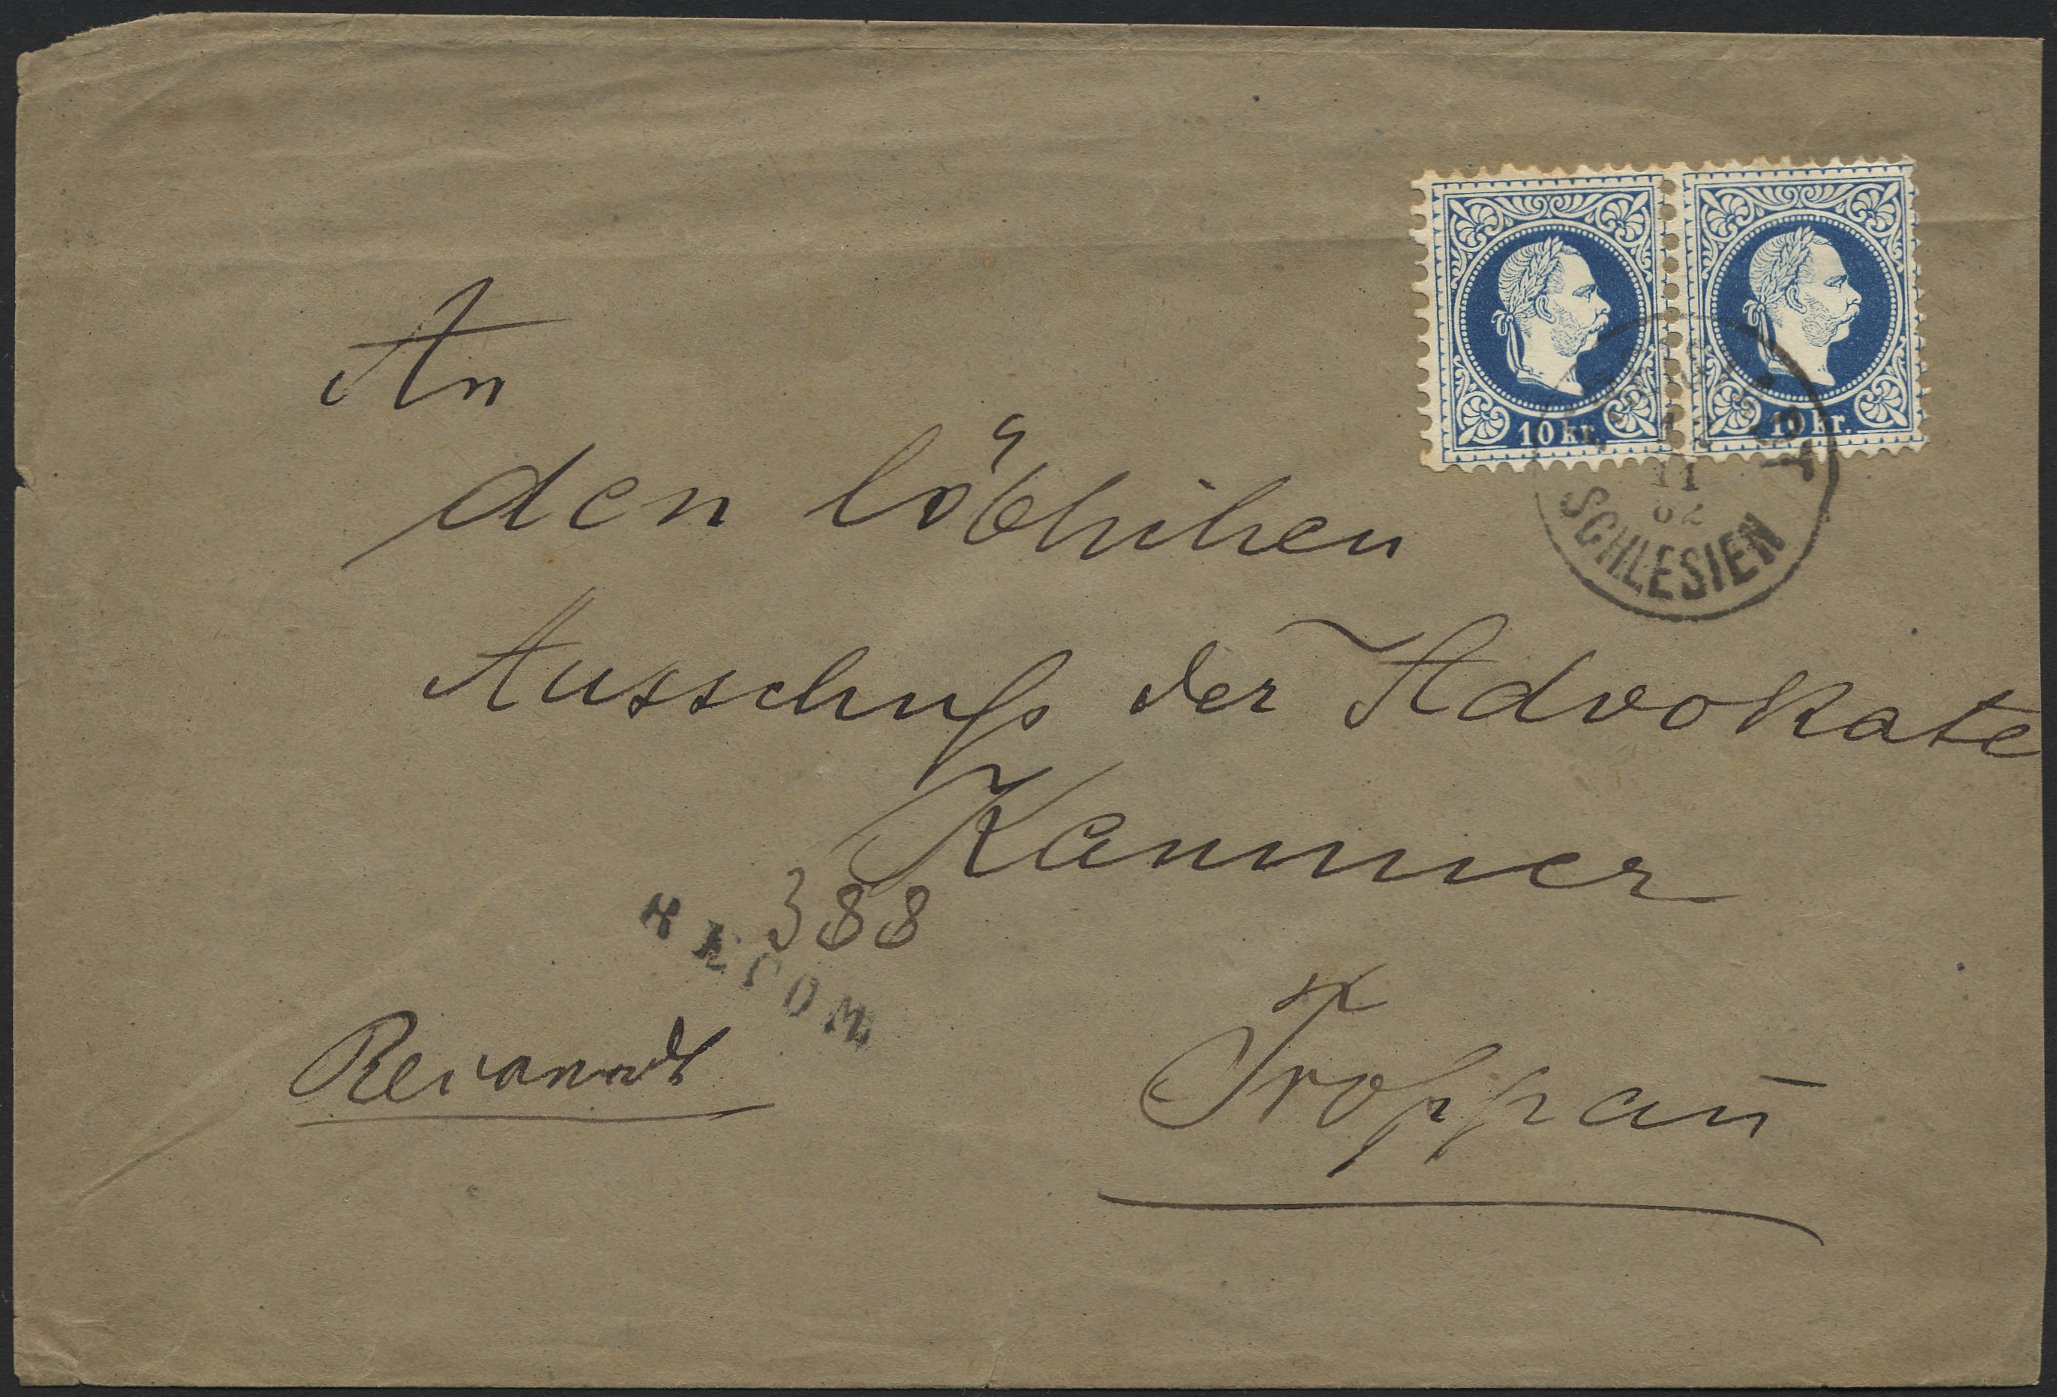 10 kr.
10 kr.
11
82
SCHLESIEN
An
den löblichen
Ausschuß der Advokate
Kammer
388
RECOM
Recomandt
Troppau